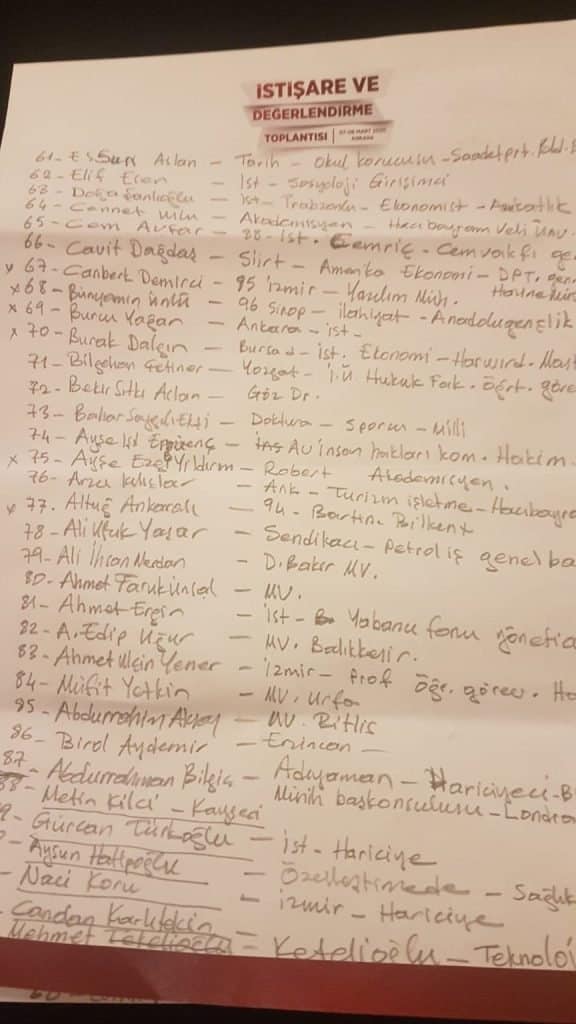 İSTİŞARE VE
DEĞERLENDİRME
TOPLANTISI | 07-08 MART 2020 ANKARA
61- Aslan - Tarih - Okul korucusu - Saadet prt.
62- Elif Esen - İst - Sosyoloji Girişimci
63- Doğa Şanlıoğlu - İst - Trabzonlu - Ekonomist
64- Cennet - Akademisyen - Hacıbayram Veli Ünv.
65- Cem Avşar - 88 - İst. - Cem vakfı
66- Cavit Dağdaş - Siirt - Amerika Ekonomi - DPT.
x 67- Canberk Demirci - 95 İzmir - Yazılım Müh.
x 68- Bünyamin Ünlü - 96 Sinop - İlahiyat - Anadolu gençlik
x 69- Burcu Yaşar - Ankara - ist -
x 70- Burak Dalgın - Bursa - İst. Ekonomi - Harward
71- Bilgehan Çetiner - Yozgat - İ.Ü. Hukuk Fak. Öğrt. göre
72- Bekir Sıtkı Aslan - Göz Dr.
73- Bahar - Doktora - Sporcu - Milli
74- Ayşe - Av insan hakları kom. Hakim.
x 75- Ayşe Ezgi Yıldırım - Robert Akademisyen.
76- Arzu - Ank - Turizm işletme - Hacıbayra
x 77. Altuğ Ankaralı - 94 - Bartın Bilkent
78- Ali Ufuk Yaşar - Sendikacı - Petrol iş genel ba
79- Ali İhsan Merdan - D. Bakır MV.
80- Ahmet Faruk Ünsal - MV.
81- Ahmet Ergin - İst - Yabancı fonu yönetic
82- A. Edip Uğur - MV. Balıkesir.
83- Ahmet Yener - İzmir - Prof Öğr. görev.
84- Müfit Yetkin - MV. Urfa
85- Abdurrahim Aksoy - MV. Bitlis
86- Birol Aydemir - Erzincan -
87- Abdurrahman Bilgiç - Adıyaman - Hariciyeci - B
Metin Kilci - Kayseri Münih başkonsolusu - Londra
Gürcan Türkoğlu - İst - Hariciye
Aysun Hatipoğlu - Özelleştirmede - Sağlık
- Naci Koru - İzmir - Hariciye
- Candan Karlıtekin
Mehmet - Ketelioğlu - Teknoloji